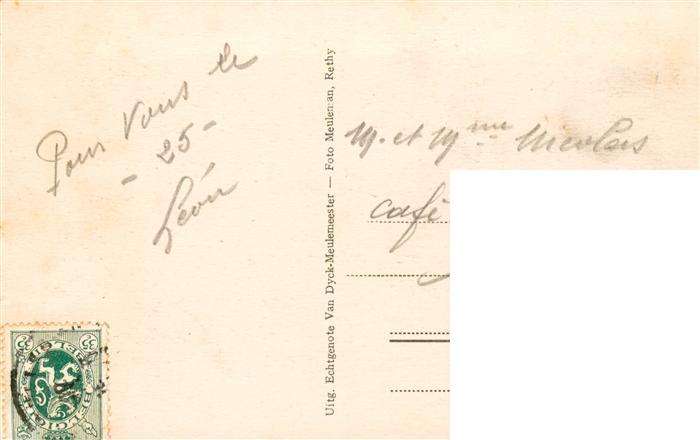 Pour Vous le
- 25 -
Léon
Uitg. Echtgenote Van Dyck-Meulemeester — Foto Meuleman, Rethy
M. et Mme Nicolas
café
BELGIE
BELGIQUE
35